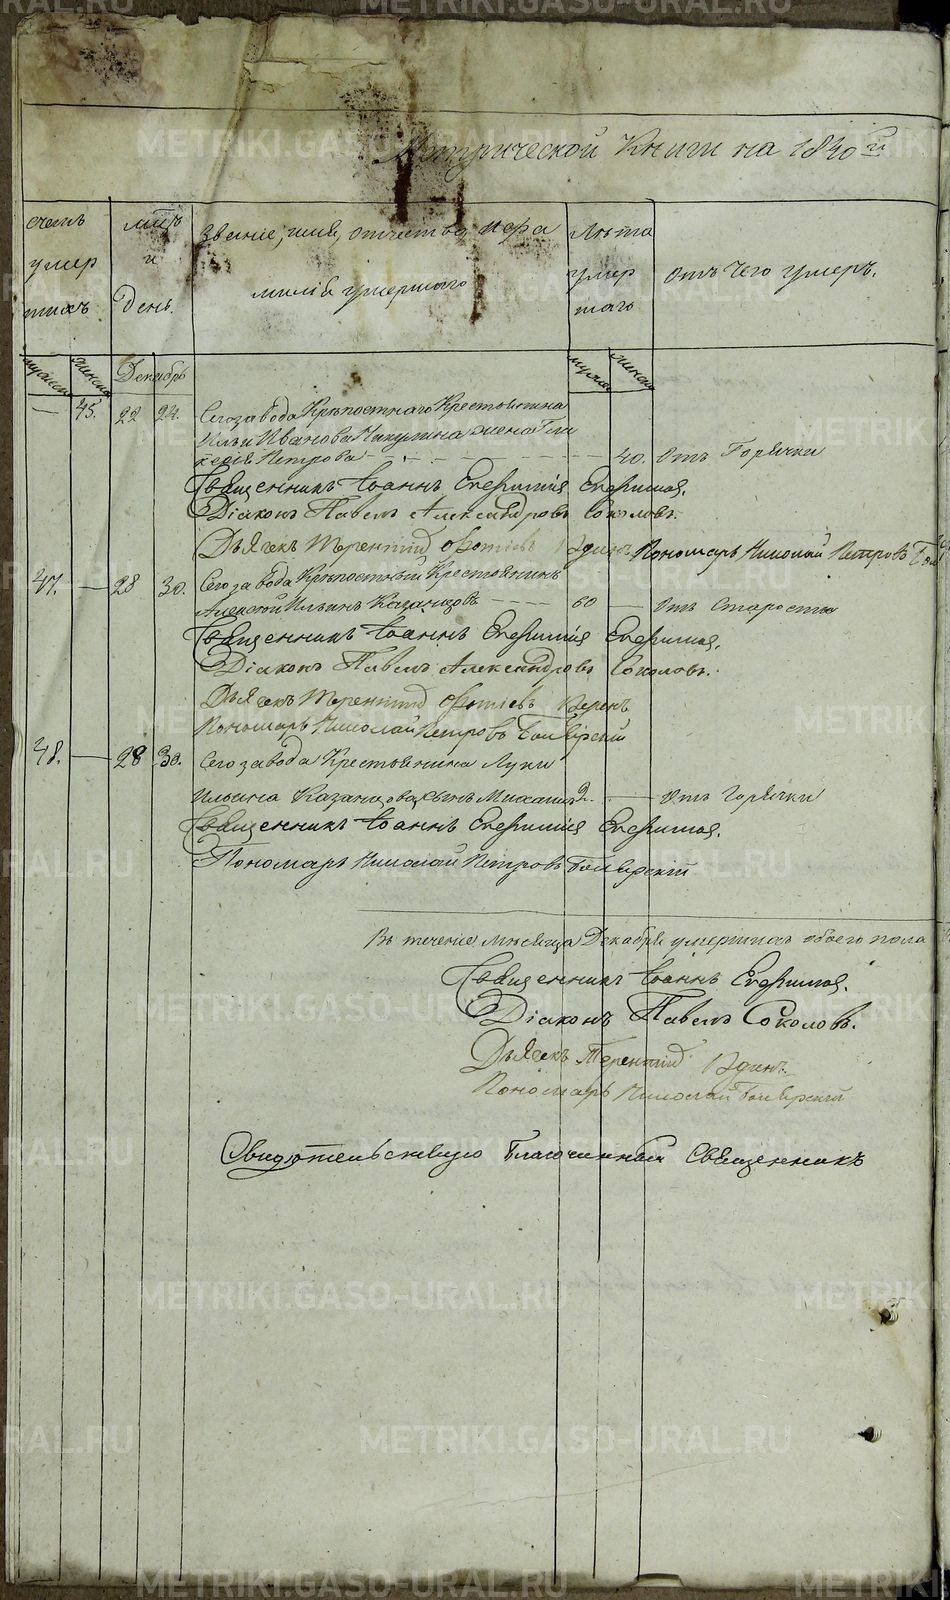 Метрической Книги на 1840й
счетъ умер шихъ
мѣсяцъ и день.
Званіе, имя, отчество, и фа милія умершаго
Лѣта умер шаго
отъ чего умеръ.
мужеска женска Декабрь мужеска женска
— 45. 22 24. Сего завода Крѣпостнаго Крестьянина
Ильи Иванова Чикунина жена Гли
керія Петрова — 40. Отъ Горячки
Священникъ Іоаннъ Евфиміевъ
Діаконъ Павелъ Александровъ Соколовъ.
Дьячекъ Терентій Фотіевъ Пономарь Николай Петровъ
47. — 28 30. Сего завода Крѣпостный Крестьянинъ
Алексѣй Ильинъ Казанцовъ — 60 — Отъ Старости
Священникъ Іоаннъ
Діаконъ Павелъ Александровъ Соколовъ.
Дьячекъ Терентій Фотіевъ
Пономарь Николай Петровъ Боярскій
48. — 28 30. Сего завода Крестьянина Луки
Ильина Казанцова сынъ Михаилъ 2. — Отъ Горячки
Священникъ Іоаннъ
Пономарь Николай Петровъ Боярскій
Въ теченіе мѣсяца Декабря умершихъ обоего пола
Священникъ Іоаннъ
Діаконъ Павелъ Соколовъ.
Дьячекъ Терентій
Пономарь Николай Боярскій
Свидѣтельствую Благочинный Священникъ
METRIKI.GASO-URAL.RU